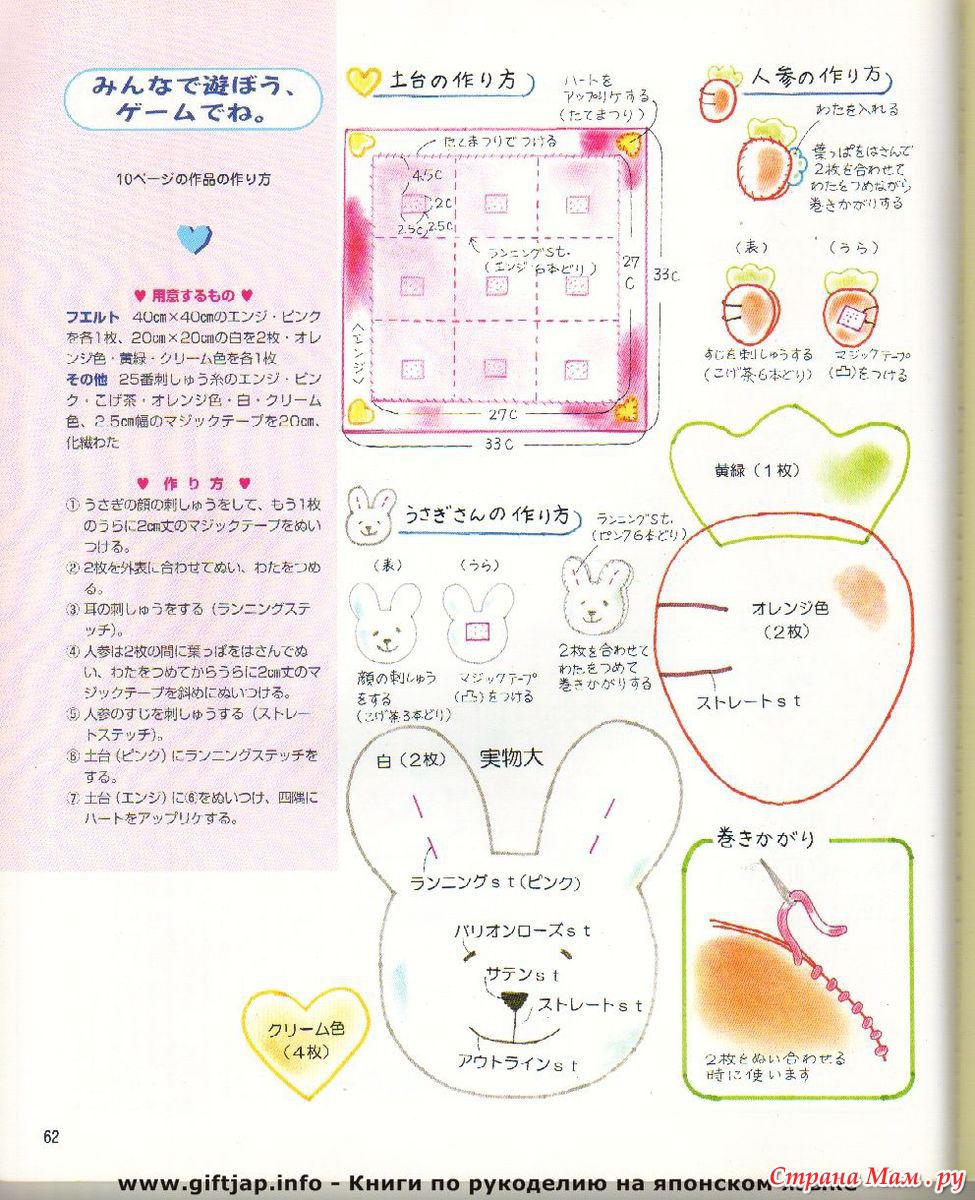 みんなで遊ぼう、
ゲームでね。
10ページの作品の作り方
♥ 用意するもの ♥
フエルト 40㎝×40㎝のエンジ・ピンク
を各1枚、20㎝×20㎝の白を2枚・オレ
ンジ色・黄緑・クリーム色を各1枚
その他 25番刺しゅう糸のエンジ・ピン
ク・こげ茶・オレンジ色・白・クリーム
色、2.5㎝幅のマジックテープを20㎝、
化繊わた
♥ 作り方 ♥
① うさぎの顔の刺しゅうをして、もう1枚
のうらに2㎝丈のマジックテープをぬい
つける。
② 2枚を外表に合わせてぬい、わたをつめ
る。
③ 耳の刺しゅうをする（ランニングステ
ッチ）。
④ 人参は2枚の間に葉っぱをはさんでぬ
い、わたをつめてからうらに2㎝丈のマ
ジックテープを斜めにぬいつける。
⑤ 人参のすじを刺しゅうする（ストレー
トステッチ）。
⑥ 土台（ピンク）にランニングステッチを
する。
⑦ 土台（エンジ）に⑥をぬいつけ、四隅に
ハートをアップリケする。
土台の作り方
ハートを
アップリケする
（たてまつり）
たてまつりでつける
4.5C
2C
2.5C 2.5C
ランニングst.
（エンジ6本どり）
27
C
33C
〈エンジ〉
27C
33C
人参の作り方
わたを入れる
葉っぱをはさんで
2枚を合わせて
わたをつめながら
巻きかがりする
（表）
（うら）
すじを刺しゅうする
（こげ茶6本どり）
マジックテープ
（凸）をつける
黄緑（1枚）
オレンジ色
（2枚）
ストレートst
うさぎさんの作り方
ランニングst.
（ピンク6本どり）
（表）
（うら）
顔の刺しゅう
をする
（こげ茶3本どり）
マジックテープ
（凸）をつける
2枚を合わせて
わたをつめて
巻きかがりする
白（2枚）
実物大
ランニングst（ピンク）
バリオンローズst
サテンst
ストレートst
アウトラインst
クリーム色
（4枚）
巻きかがり
2枚をぬい合わせる
時に使います
62
www.giftjap.info - Книги по рукоделию на японском языке
Страна Мам.ру